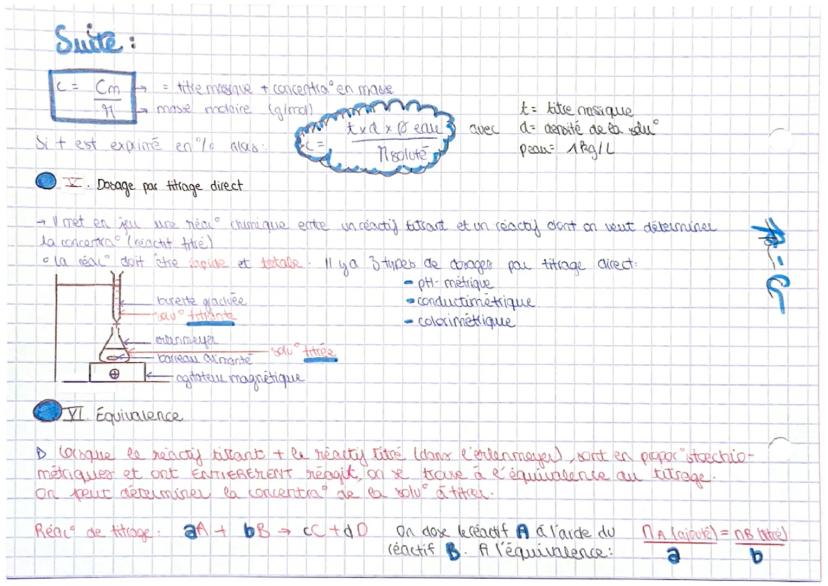 Suite :
C = Cm / M → = titre massique + concentra° en masse
→ masse molaire (g/mol)
Si t est exprimé en % alors : C = t x d x ρ eau / M soluté avec
t = titre massique
d = densité de la solu°
ρeau = 1kg/L
V. Dosage par titrage direct
→ il met en jeu une réac° chimique entre un réactif titrant et un réactif dont on veut déterminer
la concentra° (réactif titré)
• la réac° doit être rapide et totale. Il y a 3 types de dosages par titrage direct:
- pH-métrique
- conductimétrique
- colorimétrique
burette graduée
solu° titrante
erlenmeyer
solu° titrée
barreau aimanté
agitateur magnétique
VI. Équivalence
Lorsque le réactif titrant + le réactif titré (dans l'erlenmeyer), sont en propor° stoechio-
métriques et ont ENTIEREMENT réagit, on se trouve à l'équivalence du titrage.
On peut déterminer la concentra° de la solu° à titrer.
Réac° de titrage : aA + bB → cC + dD
On dose le réactif A à l'aide du
réactif B. A l'équivalence :
nA (ajouté) / a = nB (titré) / b